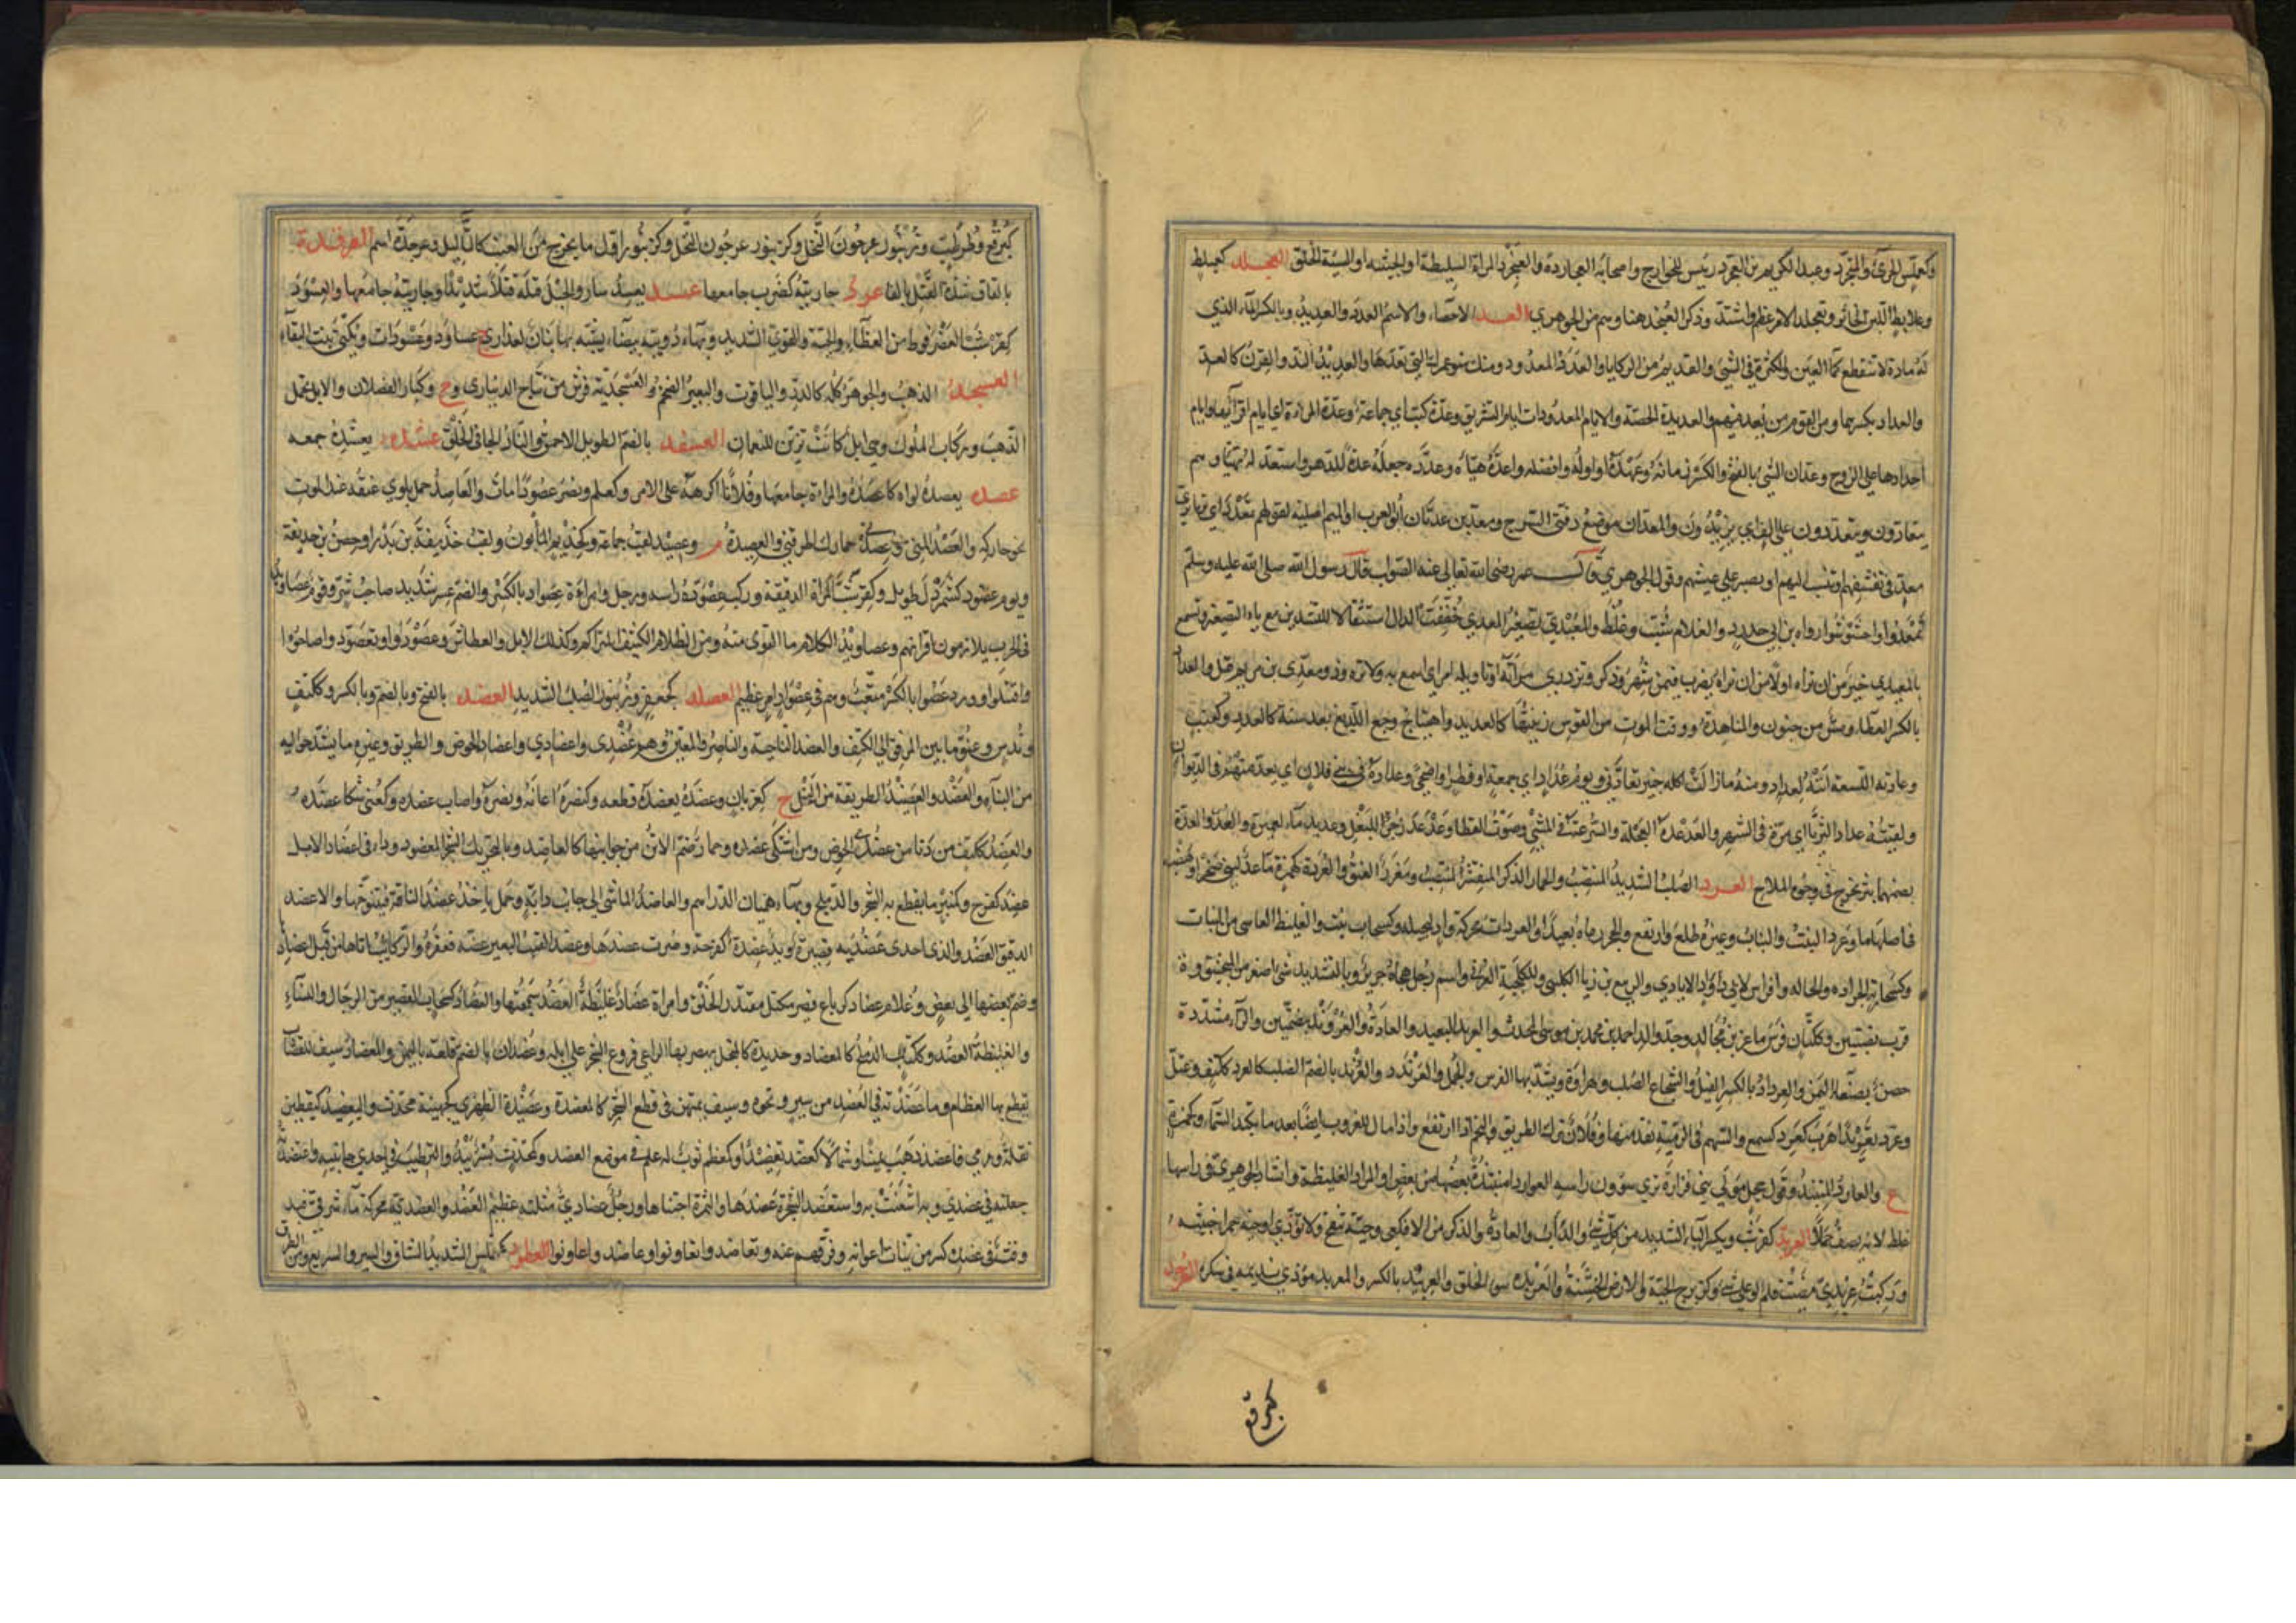 وكعملس الجرئ والمتجرد وعبد الكريم بن العجرد رئيس للخوارج واصحابه العجاردة والعنجرد المراة السليطة او الخبيثة او السيئة الخلق العجلد كعلبط
وعلابط اللبن الخاثر وتعجلد الامر عظم واشتد وذكر العنجد هنا وهم من الجوهري العد الاحصاء والاسم العدد والعديد وبالكسر الماء الذي
له مادة لا تنقطع كماء العين والكثرة في الشئ والقديم من الركايا والعدد المعدود ومنك سنو عمرك التي تعدها والعديد الند والقرن كالعد
والعداد بكسرهما ومن القوم من يعد فيهم والعديدة الحصة والايام المعدودات ايام التشريق وعدة كتب اي جماعة وعدة المراة ايام اقرائها وايام
احدادها على الزوج وعدان الشئ بالفتح والكسر زمانه وعهده او اوله وافضله واعده هياه وعدده جعله عدة للدهر واستعد له تهيا وهم
يتعادون ويتعددون على الف اي يزيدون والمعدان موضع دفتي السرج ومعد بن عدنان ابو العرب او الميم اصلية لقولهم تمعدد اي تزيا بزي
معد في تقشفهم او تنسب اليهم او تصبر على عيشهم وقول الجوهري قال عمر رضي الله تعالى عنه الصواب قال رسول الله صلى الله عليه وسلم
تمعددوا واخشوشنوا رواه بن ابي حدرد والغلام شب وغلظ والمعيدي تصغير المعدي خففت الدال استثقالا للتشديدين مع ياء التصغير وتسمع
بالمعيدي خير من ان تراه او لا من ان تراه يضرب فيمن شهر وذكر وتزدري مرآته او تاويله امر اي اسمع به ولا تره وذو معدي بن مريم قيل والعداد
بالكسر العطاء ومس من جنون والمناهدة ووقت الموت ومن القوس رنينها كالعديد واهتياج وجع اللديغ بعد سنة كالعدد كعنب
وعادته اللسعة اتته لعداد ومنه ما زالت اكلة خيبر تعادني ويوم عداد اي جمعة او فطر او اضحى وعداده في بني فلان اي يعد منهم في الديوان
ولقيته عداد الثريا اي مرة في الشهر والعدعدة العجلة والسرعة في المشي وصوت القطا وعدعد زجر للبغل وعديد ماء لعميرة والعد والعدة
بضمهما بثر يخرج في وجوه الملاح العرد الصلب الشديد المنتصب والحمار الذكر المنتشر المنتصب ومغرز العنق
فاصلها ما وعرد النبت والناب وغيره طلع وارتفع والحجر رماه بعيدا والعردات محركة واد لبجيلة وكسحاب نبت والغليظ العاسي من النبات
وكسحابة الجرادة والحالة وافراس لابي دواد الايادي والربيع بن زياد الكلبي وللكلحبة العرني واسم رجل هجاه جرير وبالتشديد شئ اصغر من المنجنيق وة
قرب نصيبين وككتان فرس ماعز بن مجالد وجد والد احمد بن محمد بن موسى المحدث والعريد البعيد والعادة والعرند بضمتين والراء مشددة
حصن بصنعاء اليمن والعرداد بالكسر الفيل والشجاع الصلب وهراوة يشد بها الفرس والجمل والعرندد والعرند بالضم الصلب كالعرد ككتف وعتل
وعرد تعريدا هرب كعرد كسمع والسهم في الرمية نفذ منها وفلان ترك الطريق والنجم اذا ارتفع واذا مال للغروب ايضا بعد ما يكبد السماء وكحمزة
ع والعارد المنتبذ وقول حجل مولى بني فزارة ترى شؤون راسه العواردا منتبذة بعضها من بعض او المراد الغليظة وانشاد الجوهري راسها
غلط لانه يصف جملا العربد كقرشب وبكسر الباء الشديد من كل شئ والداب والعادة والذكر من الافاعي وحية تنفخ ولا تؤذي او حية حمراء خبيثة
وركبت عربدي مضيت فلم الو على شئ وكزبرج الحية والارض الخشنة والعربدة سوء الخلق والعربيد بالكسر والمعربد مؤذي نديمه في سكره العرجد
كبرقع
كبرقع وطرطب وزنبور عرجون النخل وكزنبور اول ما يخرج من العنب كالثاليل وعرجدة اسم العرقدة
بالقاف شدة الفتل بالفاء عزد جاريته كضرب جامعها عسد يعسد سار والحبل فتله فتلا شديدا وجاريته جامعها والعسود
كقرشب العضرفوط من العظاء والحية والقوي الشديد وبهاء دويبة بيضاء يشبه بها بنان العذارى ج عساود وعسودات وتكنى بنت النقا
العسجد الذهب والجوهر كله كالدر والياقوت والبعير الضخم والعسجدية فرس من نتاج الديناري وع وكبار الفصلان والابل تحمل
الذهب وركاب الملوك وهي ابل كانت تزين للنعمان العسقد بالضم الطويل الاحمق والتار الجافي الخلق عشده يعشده جمعه
عصده يعصده لواه كاعصده والمراة جامعها وفلانا اكرهه على الامر وكعلم ونصر عصودا مات والعاصد جمل يلوي عنقه عند الموت
نحو حاركه والعصد المني والعصيدة م وعصيد لقب جماعة وكحذيم المابون ولقب حذيفة بن بدر او حصن بن حذيفة
ويوم عصود كشمردل طويل وكقرشب المراة الدقيقة وركب عصودة راسه ورجل وامراة عصواد بالكسر والضم عسر شديد صاحب شر وقوم عصاويد
في الحرب يلازمون اقرانهم وعصاويد الكلام ما التوى منه ومن الظلام الكثيف المتراكم وكذلك الابل والعطاش وعصودوا وتعصودوا صاحوا
واقتتلوا وورد عصواد بالكسر متعب وهم في عصواد امر عظيم العصلد كجعفر وزنبور الصلب الشديد العضد بالفتح وبالضم وبالكسر وككتف
وندس وعنق ما بين المرفق الى الكتف والعضد الناحية والناصر والمعين وهم عضدي واعضادي واعضاد الحوض والطريق وغيره ما يشد حواليه
من البناء والعضد والعضيد الطريقة من النخل ج كغربان وعضده يعضده قطعه وكنصره اعانه ونصره واصاب عضده وكعني شكا عضده
والعضد ككتف من دنا من عضدي الحوض ومن اشتكى عضده وحمار ضم الاتن من جوانبها كالعاضد وبالتحريك الشجر المعضود وداء في اعضاد الابل
عضد كفرح وكمنبر ما يقطع به الشجر والدملج وبهاء هميان الدراهم والعاضد الماشي الى جانب دابة وجمل ياخذ عضد الناقة فيتنوخها والاعضد
الدقيق العضد والذي احدى عضديه قصيرة ويد عضدة كفرحة قصرت عضدها وعضد القتب البعير عضه فعقره والركائب اتاها من قبل اعضادها
وضم بعضها الى بعض وغلام عضاد كرباع قصير مكتل مقتدر الخلق وامراة عضاد غليظة العضد سمجتها والعضاد كسحاب القصير من الرجال والنساء
والغليظة العضد وككتاب الدملج كالمعضاد وحديدة كالمنجل يهصر بها الراعي فروع الشجر على ابله وعضدان بالضم قلعة باليمن والمعضاد سيف للقصاب
يقطع بها العظام وما عضدته في العضد من سير ونحوه وسيف يمتهن في قطع الشجر كالمعضدة وعضيدة الظهري كجهينة محدث واليعضيد كيقطين
بقلة ورمى فاعضد ذهب يمينا وشمالا كعضد تعضيدا وكمعظم ثوب له علم في موضع العضد وكمحدث بسر يبدو الترطيب في احدى جانبيه واعتضدته
جعلته في عضدي وبه استعنت به واستعضد الشجرة عضدها والثمرة اجتناها ورجل عضادي مثلثة عظيم العضد والعضدية محركة ماء شرقي فيد
وفت في عضدك كسر من نيات اعوانه وفرقهم عنه وتعاضد وا تعاونوا وعاضدوا عاونوا العطود كعملس الشديد الشاق والسير السريع ومن الطرق